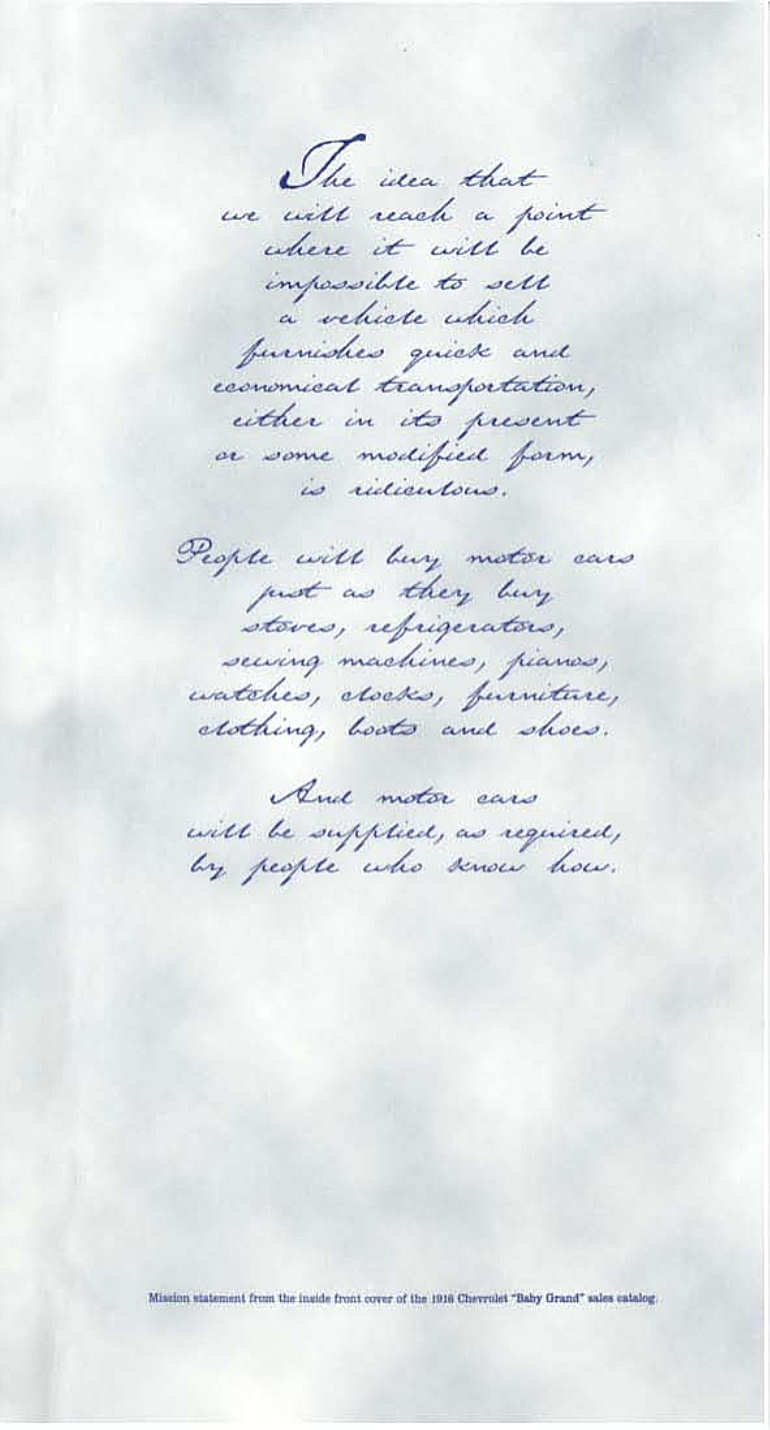 The idea that
we will reach a point
where it will be
impossible to sell
a vehicle which
furnishes quick and
economical transportation,
either in its present
or some modified form,
is ridiculous.
People will buy motor cars
just as they buy
stoves, refrigerators,
sewing machines, pianos,
watches, clocks, furniture,
clothing, boots and shoes.
And motor cars
will be supplied, as required,
by people who know how.
Mission statement from the inside front cover of the 1916 Chevrolet "Baby Grand" sales catalog.